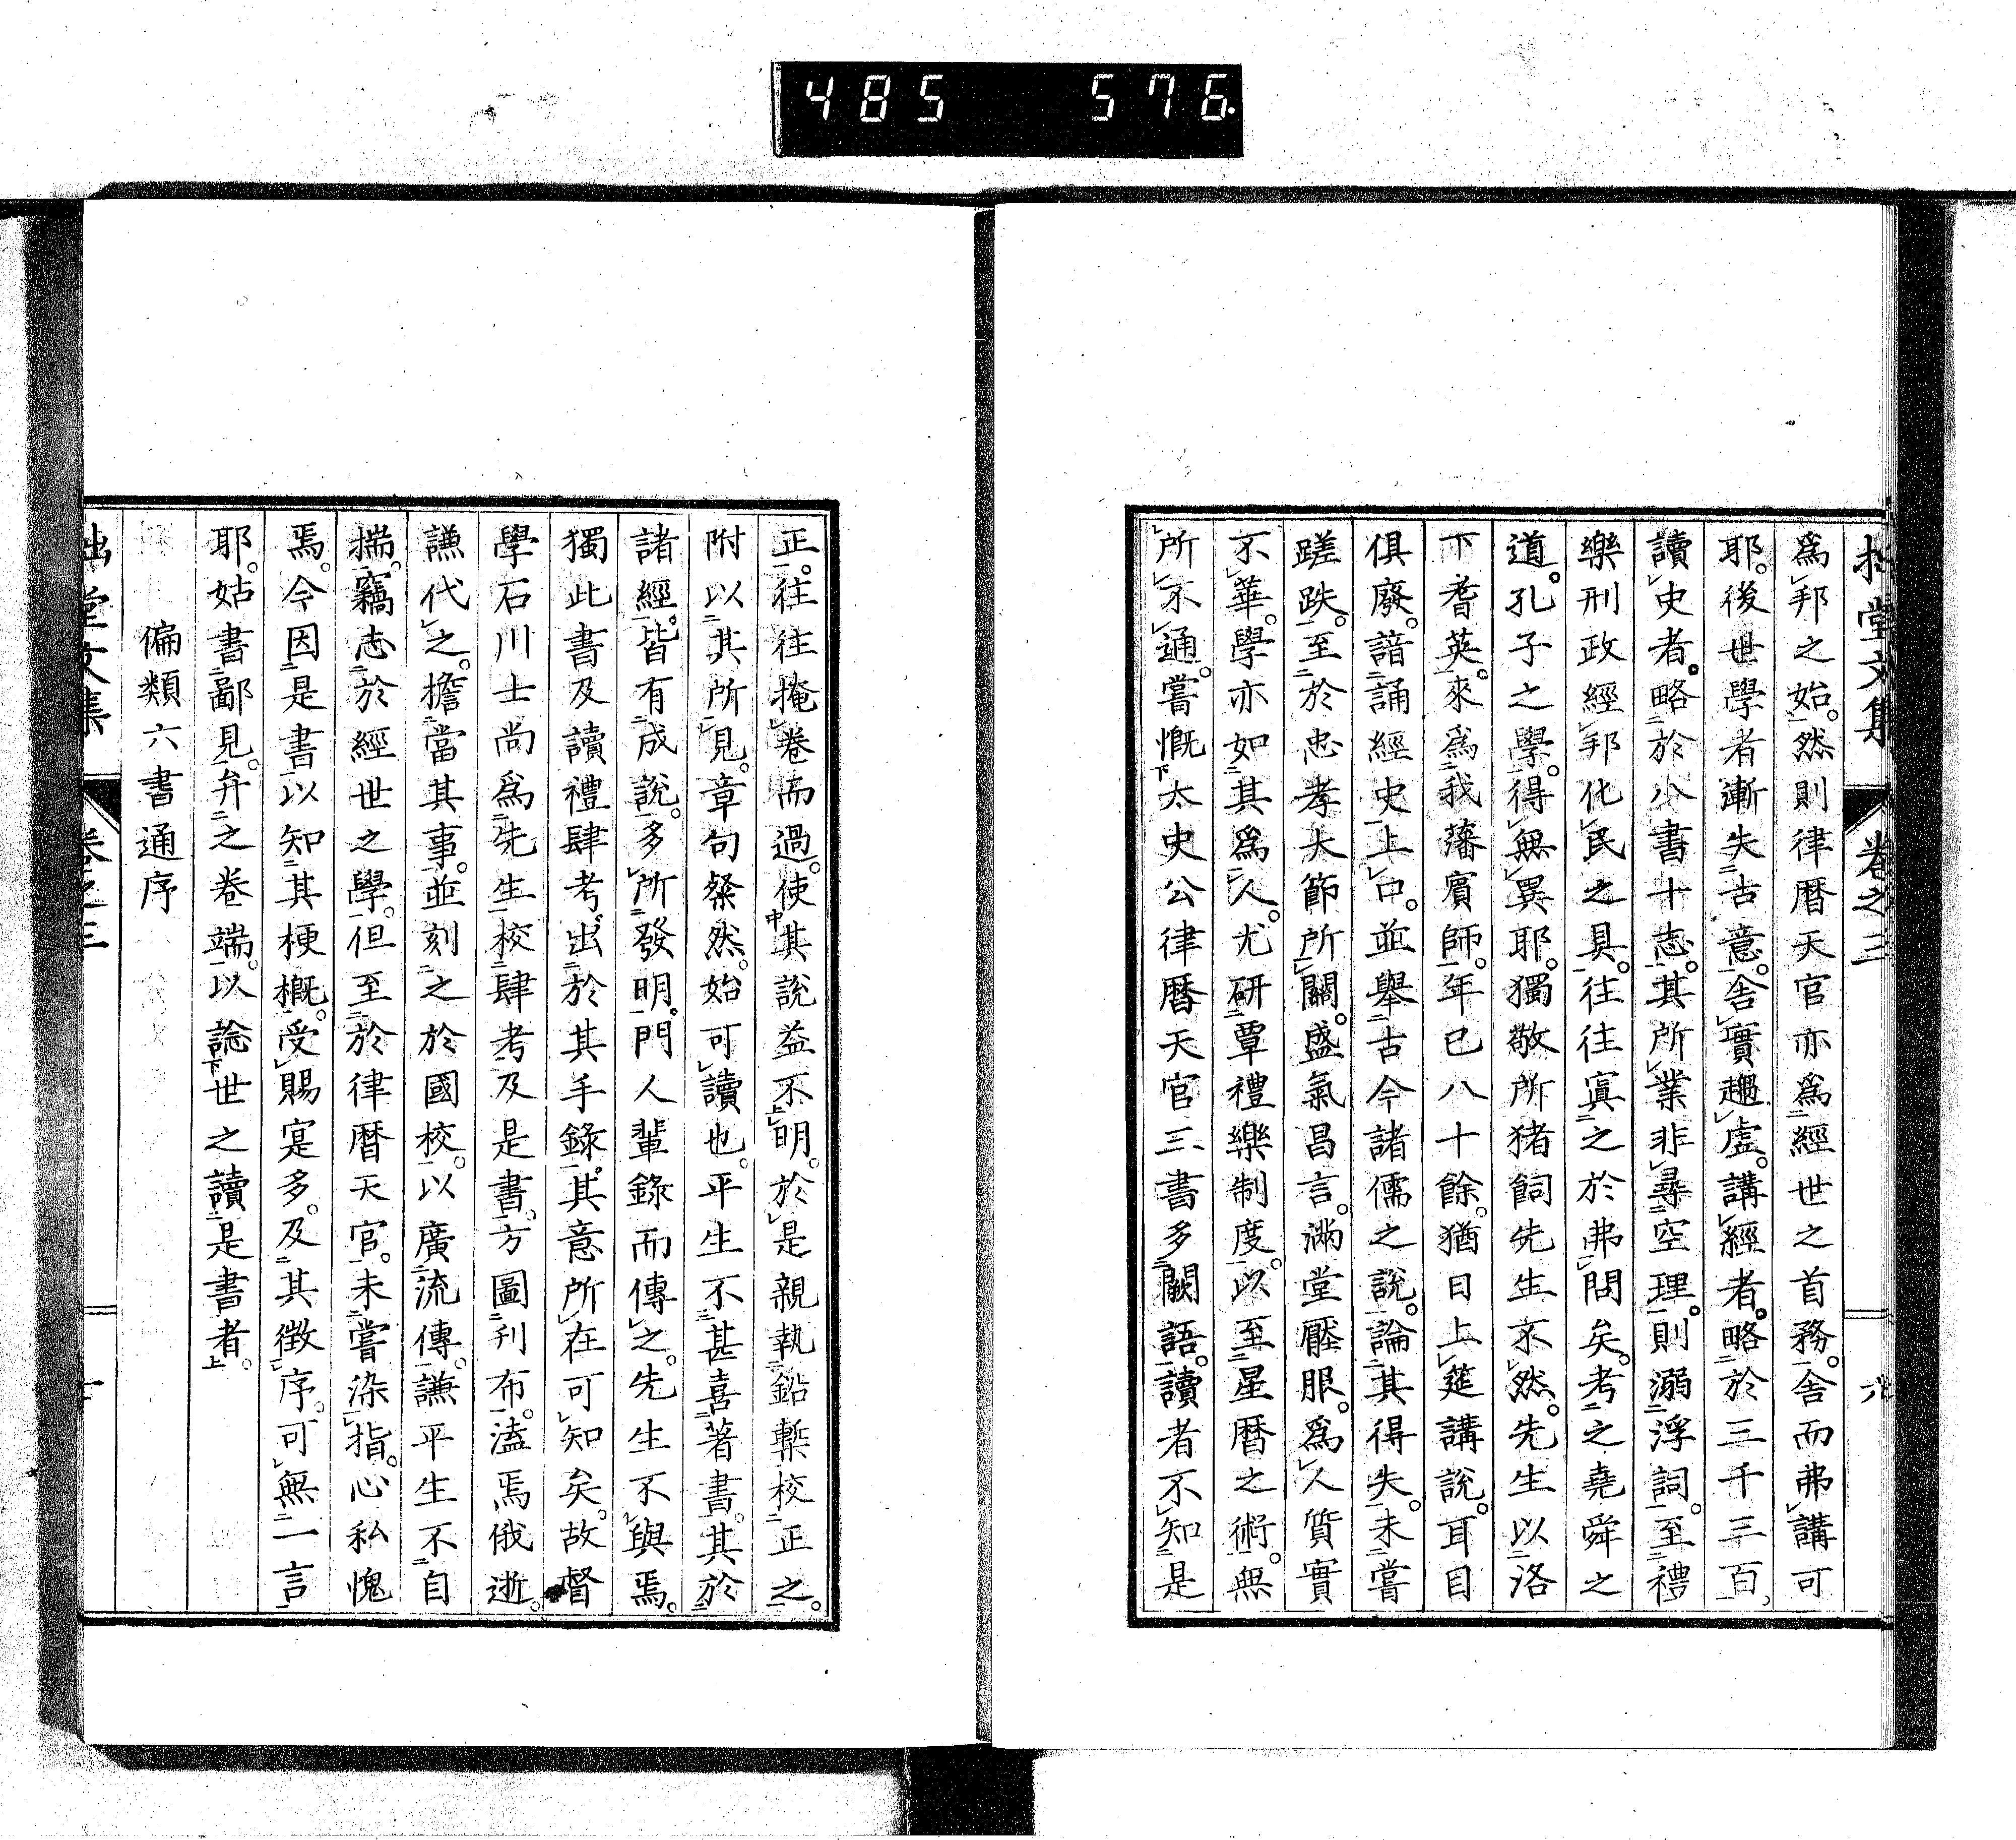 485 576.
拙堂文集 卷之三 六
爲邦之始。然則律暦天官亦爲經世之首務。舍而弗講可
耶。後世學者漸失古意。舍實趨虛。講經者。略於三千三百。
讀史者。略於八書十志。其所業非尋空理。則溺浮詞。至禮
樂刑政經邦化民之具。往往寘之於弗問矣。考之堯舜之
道。孔子之學。得無異耶。獨敬所猪飼先生不然。先生以洛
下耆英。來爲我藩賓師。年已八十餘。猶日上筵講說。耳目
俱廢。諳誦經史上口。並舉古今諸儒之說。論其得失。未嘗
蹉跌。至於忠孝大節所關。盛氣昌言。滿堂壓服。爲人質實
不華。學亦如其爲人。尤研覃禮樂制度。以至星暦之術。無
所不通。嘗慨太史公律暦天官三書多闕語。讀者不知是
正。往往掩卷而過。使其說益不明。於是親執鉛槧校正之。
附以其所見。章句粲然。始可讀也。平生不甚喜著書。其於
諸經。皆有成說。多所發明。門人輩錄而傳之。先生不與焉。
獨此書及讀禮肆考。出於其手錄。其意所在可知矣。故督
學石川士尚爲先生校肆考及是書。方圖刊布。溘焉俄逝。
謙代之。擔當其事。並刻之於國校。以廣流傳。謙平生不自
揣。竊志於經世之學。但至於律暦天官。未嘗染指。心私愧
焉。今因是書以知其梗概。受賜寔多。及其徵序。可無一言
耶。姑書鄙見。弁之卷端。以諗世之讀是書者。
偏類六書通序
拙堂文集 卷之三